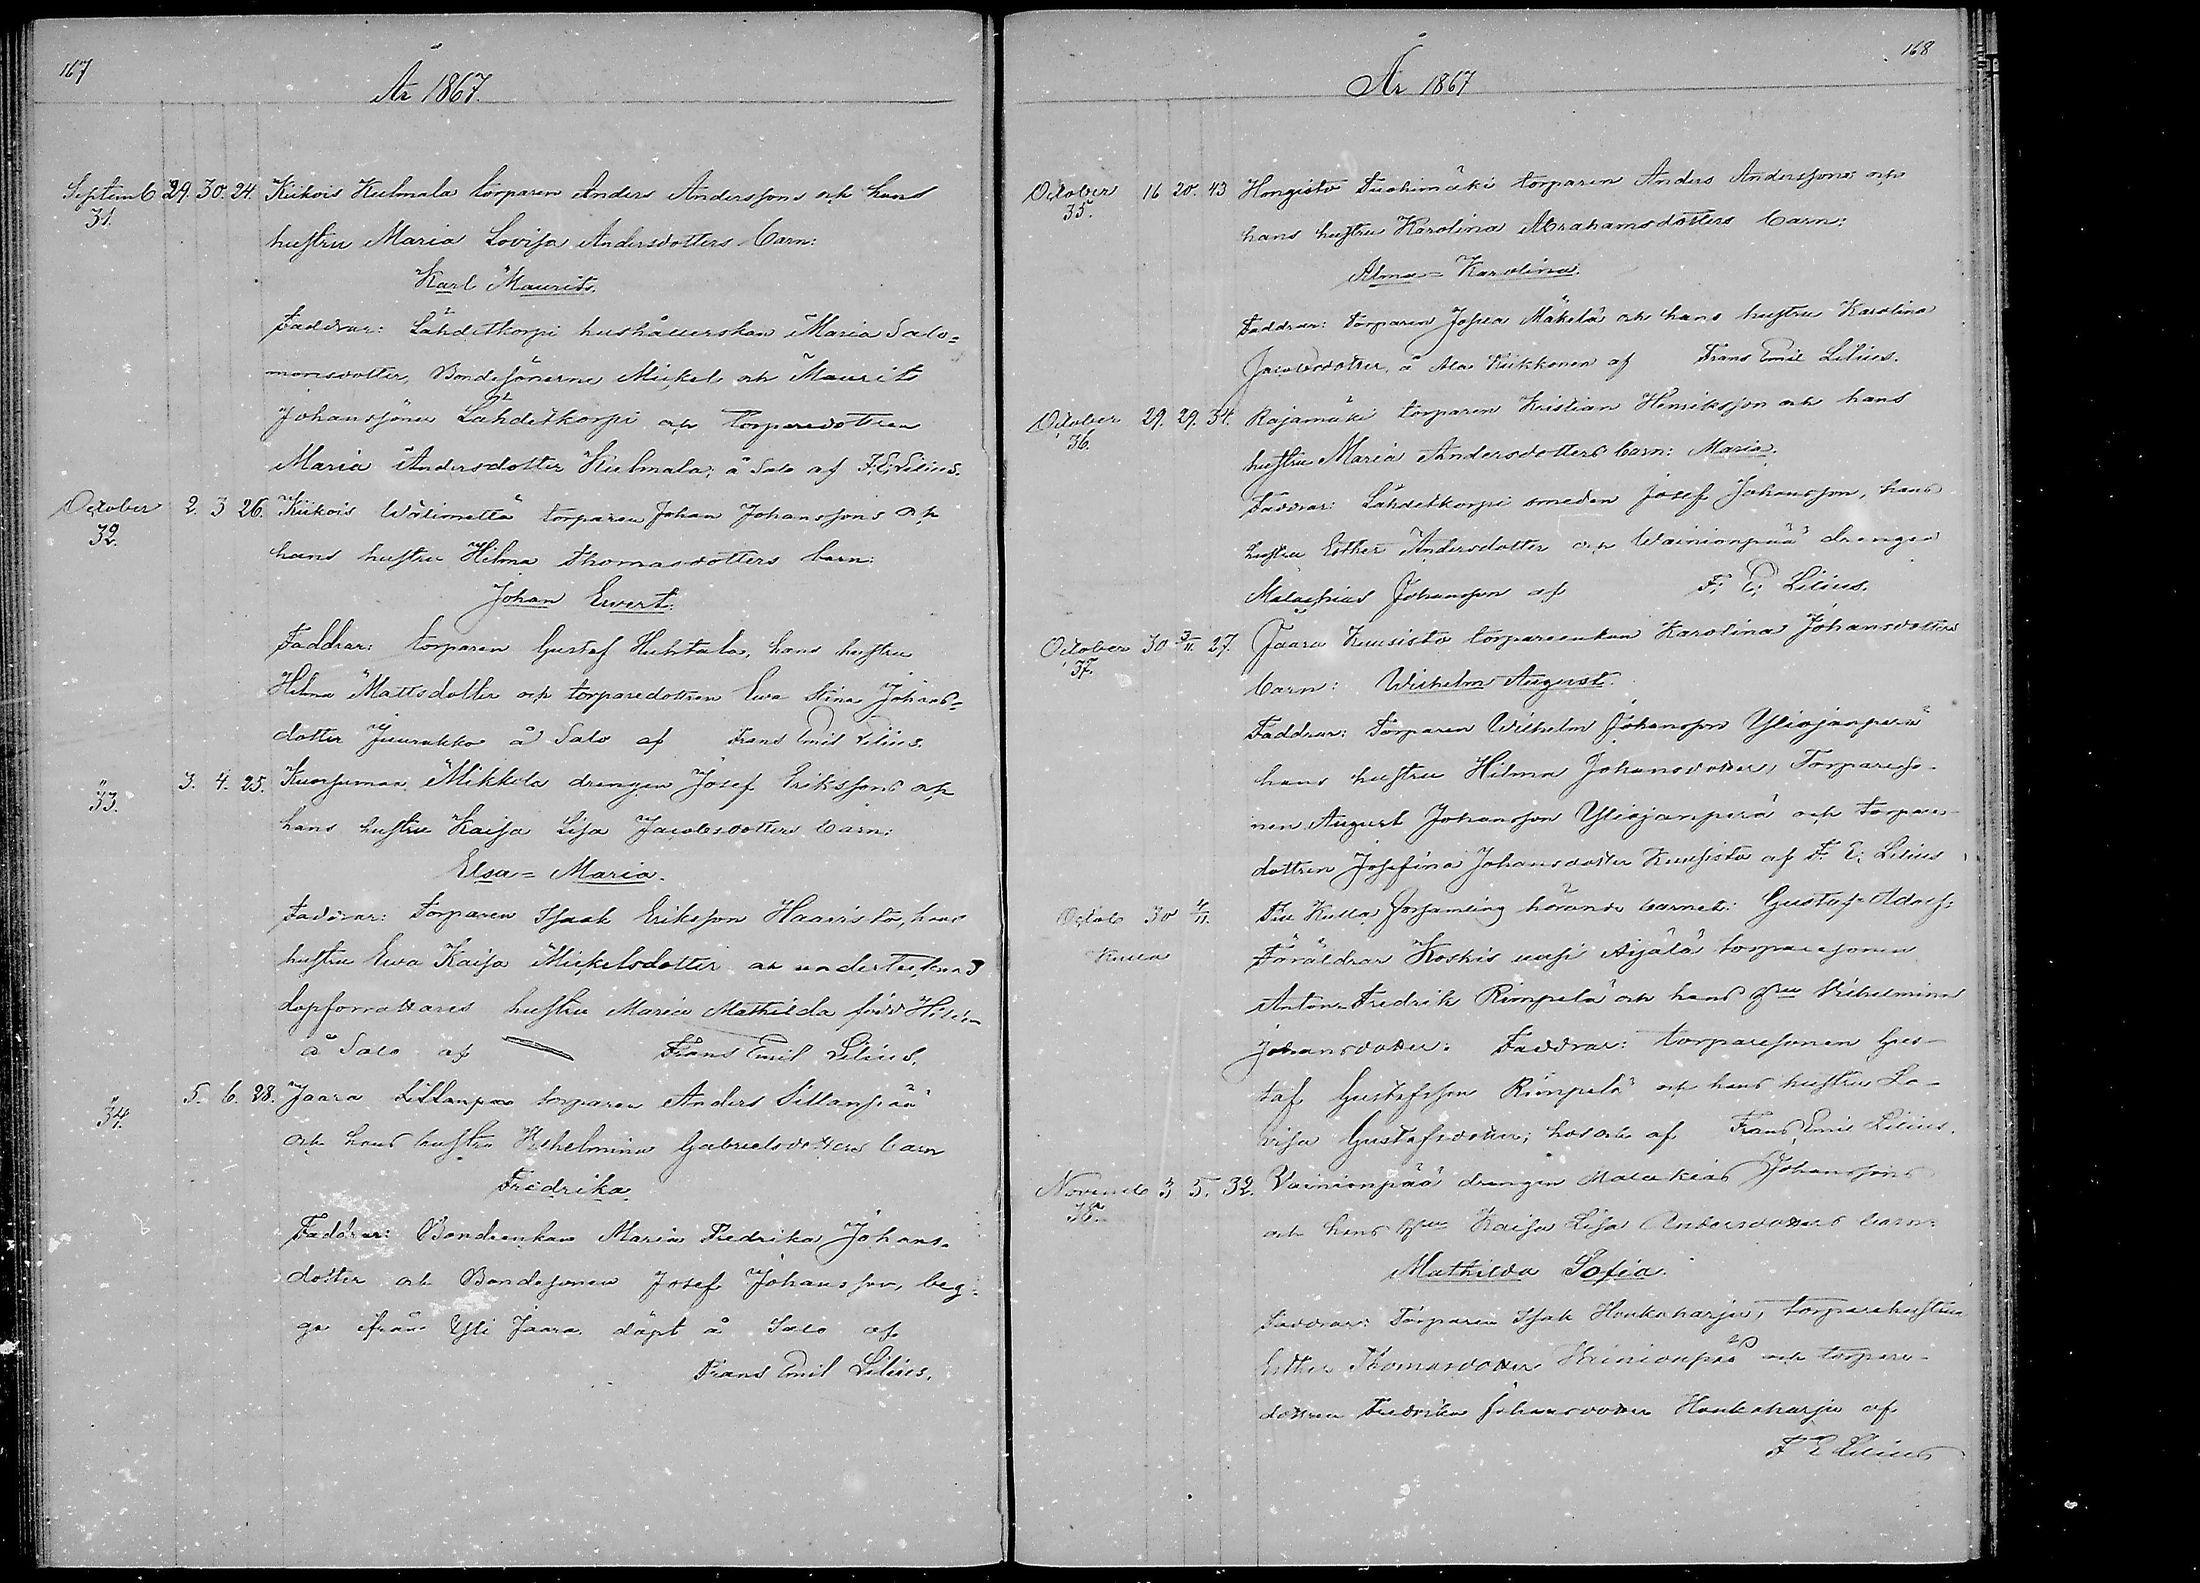 167
År 1867.
Septemb 29. 30. 24. Kiikois Kulmala torparen Anders Anderssons och hans
31.
hustru Maria Lovisa Andersdotters barn:
Karl Maurits.
Faddrar: Lähdetkorpi hushållerskan Maria Salo=
monsdotter, Bondesönerne Mickel och Maurits
Johanssöner Lähdetkorpi och torparedottren
Maria Andersdotter Kulmala; å Salo af F. E. Lilius.
October 2. 3 26. Kiikois torparen Johan Johanssons och
32.
hans hustru Hilma Thomasdotters barn:
Johan Evert.
Faddrar: torparen Gustaf Huhtala, hans hustru
Hilma Mattsdotter och torparedottren Eva Stina Johans=
dotter Juurakko å Salo af Frans Emil Lilius.
" 3. 4. 25. Mikkola drengen Josef Erikssons och
33.
hans hustru Kaisa Lisa Jacobsdotters barn:
Elsa = Maria.
Faddrar: Torparen Isaak Eriksson Haavisto, hans
hustru Eva Kaisa Mickelsdotter och undertecknad
dopförrättares hustru Maria Mathilda född
å Salo af Frans Emil Lilius.
" 5. 6. 28. Jaara Sillanpää torparen Anders Sillanpää
34.
och hans hustru Vilhelmina Gabrielsdotters barn
Fredrika
Faddrar: Bondeenkan Maria Fredrika Johans=
dotter och Bondesonen Josef Johansson, beg=
ge ifrån Yli Jaara döpt å Salo af
Frans Emil Lilius.
168
År 1867
October 16 20. 43 Hongisto torparen Anders Anderssons och
35.
hans hustru Karolina Abrahamsdotters barn:
Alma = Karolina.
Faddrar: torparen Josua Mäkelä och hans hustru Karolina
Jacobsdotter, å Ala Kiikkonen af Frans Emil Lilius.
October 29. 29. 34. Rajamäki torparen Kristian Henriksson och hans
36.
hustru Maria Andersdotters barn: Maria.
Faddrar: Lähdetkorpi smeden Josef Johansson, hans
hustru Esther Andersdotter och Wäinionpää drengen
Malachias Johansson af F. E. Lilius.
October 30 3/11. 27. Jaara Kuusisto torpareenkan Karolina Johansdotters
37.
barn: Wilhelm August.
Faddrar: Torparen Wilhelm Johansson Yliojanperä
hans hustru Hilma Johansdotter, Torpareso-
nen August Johansson Yliojanperä och torpare-
dottren Josefina Johansdotter Kuusisto af F. E. Lilius
Octob 30 4/11. Till Kulla församling hörande barnet: Gustaf Adolf:
Kulla
Föräldrar Koskis Äijälä torparesonen
Anton Fredrik Rimpelä och hans hstru Vilhelmina
Johansdotter. Faddrar: torparesonen Gus-
taf Gustafsson Rimpelä och hans hustru Lo-
visa Gustafsdotter; af Frans Emil Lilius.
Novemb 3 5. 32. Väinionpää drengen Malakias Johanssons
38.
och hans hstru Kaisa Lisa Andersdotters barn:
Mathilda Sofia.
Faddrar: Torparen Isak Honkoharju, torparehustrun
Esther Thomasdotter Väinionpää och torpare-
dottren Fredrika Johansdotter Honkoharju af
F E Lilius